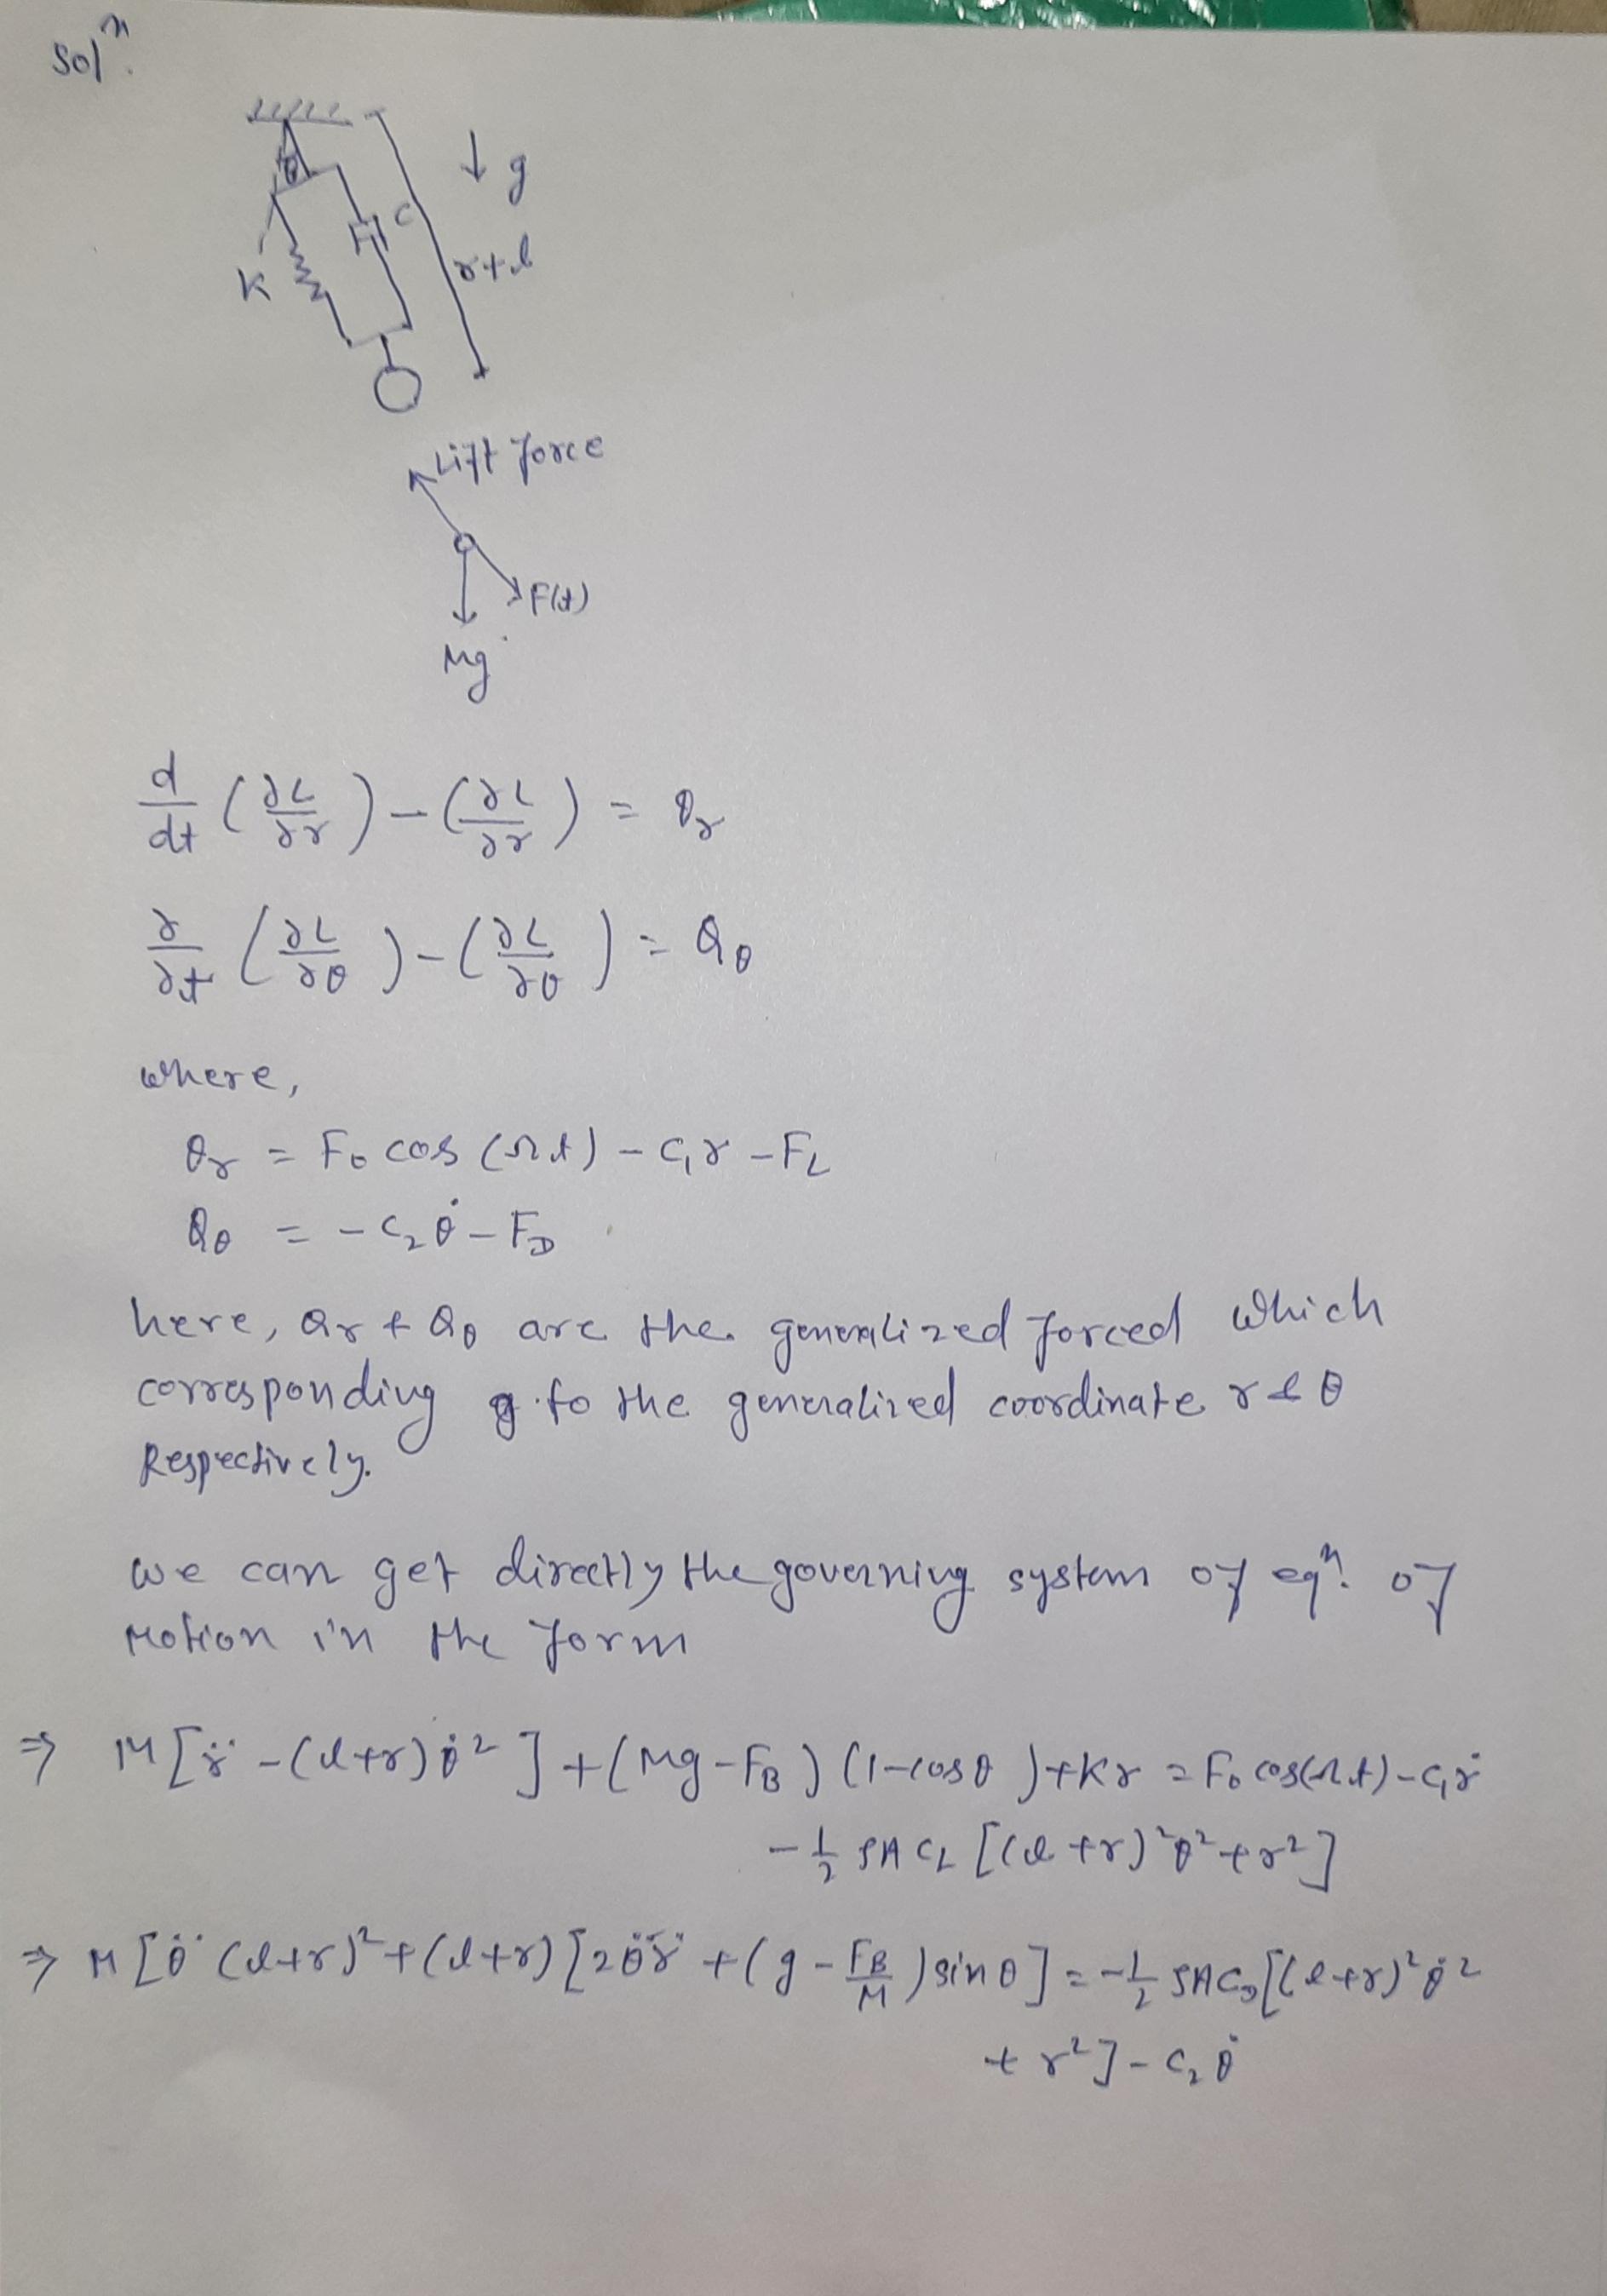 Solⁿ.
θ
↓ g
C
K
r+l
Lift force
F(t)
Mg
d/dt (∂L/∂r) - (∂L/∂r) = Qr
∂/∂t (∂L/∂θ) - (∂L/∂θ) = Qθ
where,
Qr = F₀ cos (Ωt) - C₁r - FL
Qθ = -C₂θ̇ - FD
here, Qr & Qθ are the generalized forced which
corresponding to the generalized coordinate r & θ
Respectively.
we can get directly the governing system of eqⁿ. of
Motion in the form
⇒ M[r̈ - (l+r)θ̇²] + (Mg-FB) (1-cosθ) + Kr = F₀ cos(Ωt) - C₁ṙ
- 1/2 ρACL [(l+r)²θ̇² + r²]
⇒ M[θ̈ (l+r)² + (l+r) [2θ̇ṙ + (g - FB/M) sinθ] = -1/2 ρACD[(l+r)²θ̇²
+ r²] - C₂θ̇